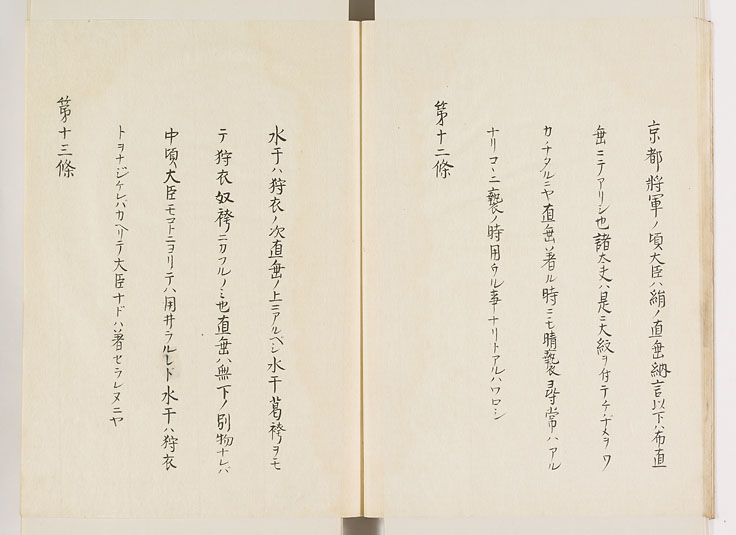 京都將軍ノ頃大臣ハ絹ノ直垂納言以下ハ布直
垂ニテアリシ也諸太夫ハ是ニ大紋ヲ付テケヂメヲワ
カチタルニヤ直垂ヲ著ル時ニモ晴褻尋常ハアル
ナリコヽニ褻ノ時用ウル事ナリトアルハワロシ
第十二條
水干ハ狩衣ノ次直垂ノ上ニアルベシ水干葛袴ヲモ
テ狩衣奴袴ニカフルノミ也直垂ハ無下ノ別物ナレバ
中頃大臣モコトニヨリテハ用井ラルレド水干ハ狩衣
トヲナジケレバカヘリテ大臣ナドハ著セラレヌニヤ
第十三條